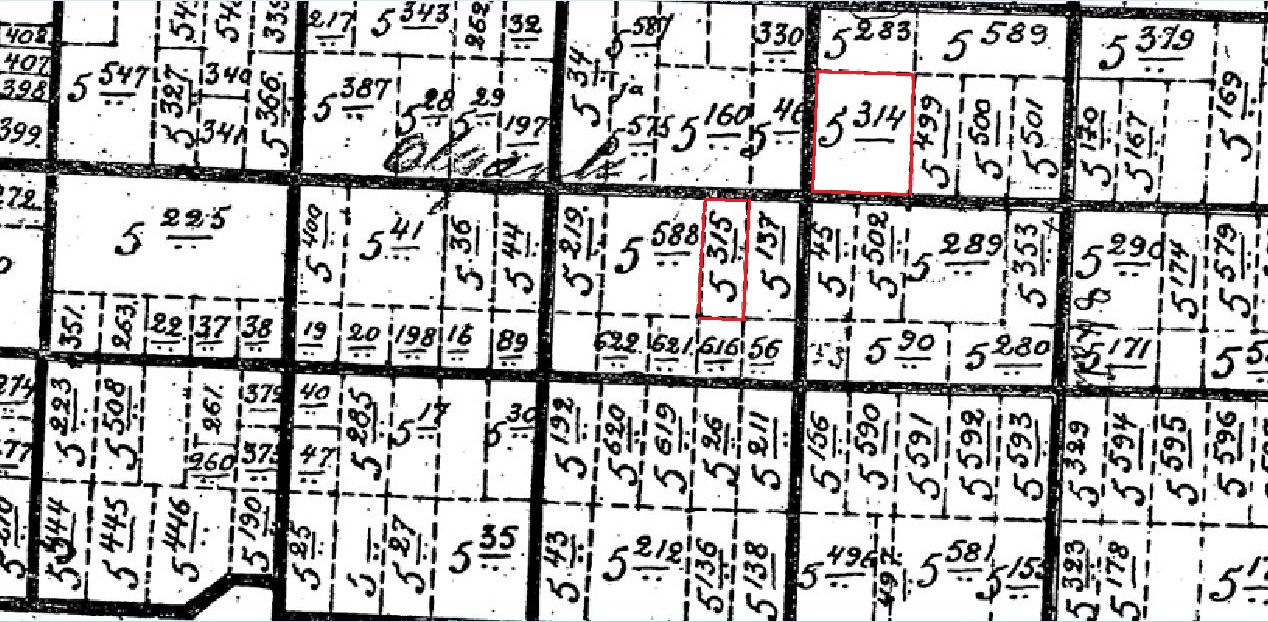 408 217 5 343 262 32 5 587 330 5 283 5 589 5 379
407
398 5 547 5 327 340 5 366 5 387 5 28 5 29 5 34 5 160 5 46 5 314 5 499 5 500 5 501 5 170 5 167 5 169
399 341 197 5 575
272 5 225 5 400 5 41 5 36 5 44 5 219 5 588 5 315 5 137 5 45 5 502 5 289 5 353 5 290 5 174 5 579
351 263 22 37 38 19 20 198 16 89 622 621 616 56 5 90 5 280 5 171
274 5 223 5 508 261 379 40 5 285 5 17 5 30 5 192 5 620 5 619 5 26 5 211 5 156 5 590 5 591 5 592 5 593 5 329 5 594 5 595 5 596
277 260 375 47
5 444 5 445 5 446 5 190 5 25 5 27 5 35 5 43 5 212 5 136 5 138 5 496 497 5 581 5 323 5 178